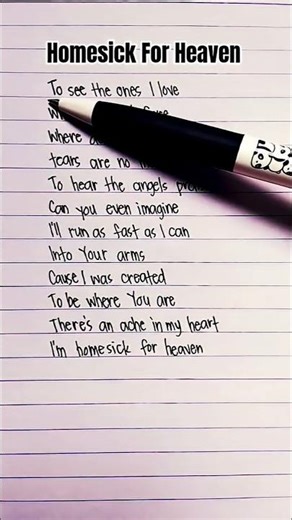 Homesick For Heaven
To see the ones I love
Where
tears are no
To hear the angels
Can you even imagine
I'll run as fast as I can
Into Your arms
Cause I was created
To be where You are
There's an ache in my heart
I'm homesick for heaven